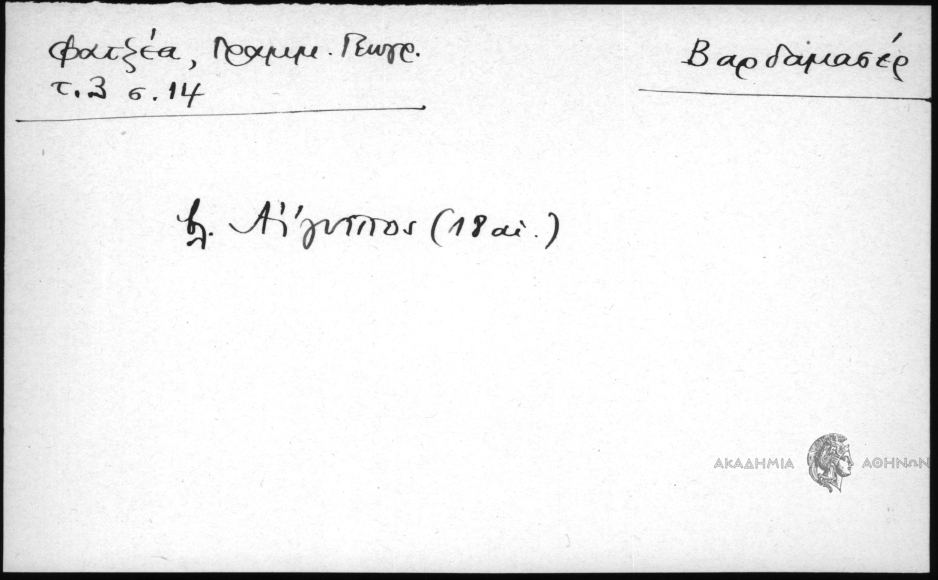 Φατζέα, Γραμμ. Γεωγρ.
τ. 3 σ. 14
Βαρδαμασέρ
βλ. Αἴγυπτος (18 αἰ.)
ΑΚΑΔΗΜΙΑ ΑΘΗΝΩΝ